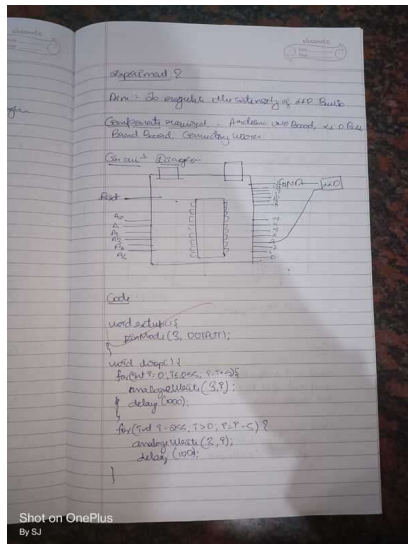 classmate
Experiment 2
Aim :- To regulate the intensity of LED Bulb
Components required - Arduino UNO Board, LED Bulb
Bread Board, Connecting wires
Circuit Diagram
GND
LED
Reset
A0
A1
A2
A3
A4
A5
Code
void setup() {
pinMode(3, OUTPUT);
}
void loop() {
for(int i=0; i<=255; i=i+5){
analogWrite(3,i);
delay(1000);
}
for(int i=255; i>0; i=i-5) {
analogWrite(3, i);
delay(100);
}
Shot on OnePlus
By SJ